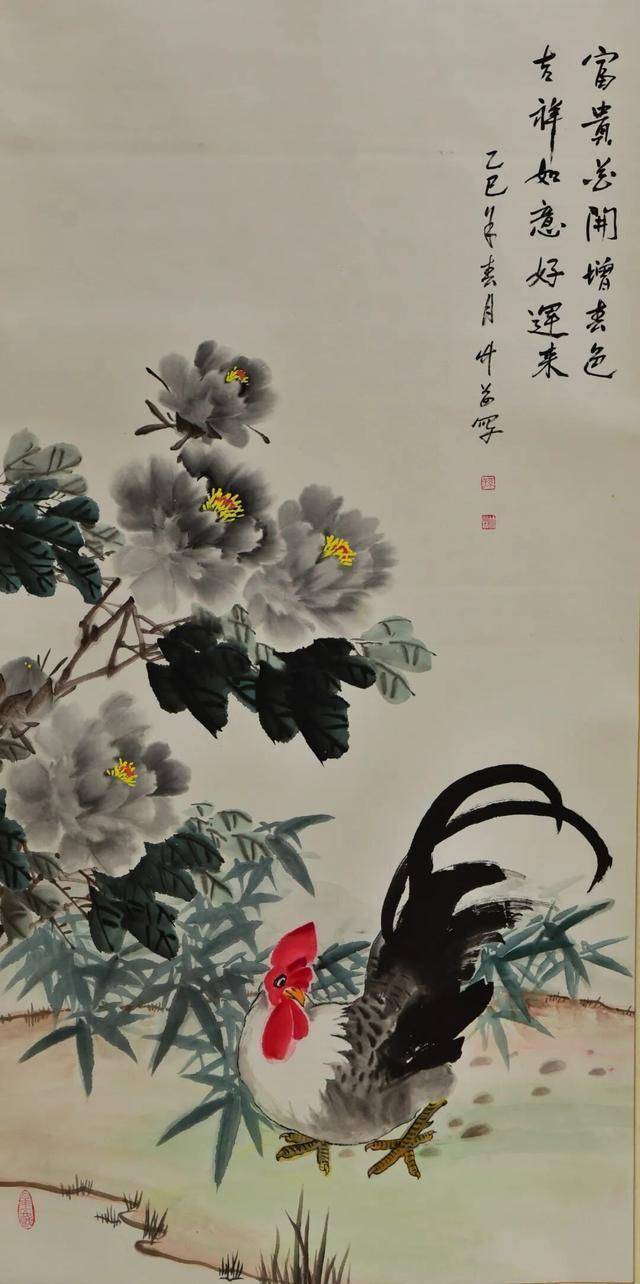 富貴花開增春色
吉祥如意好運来
乙巳年春月竹君寫